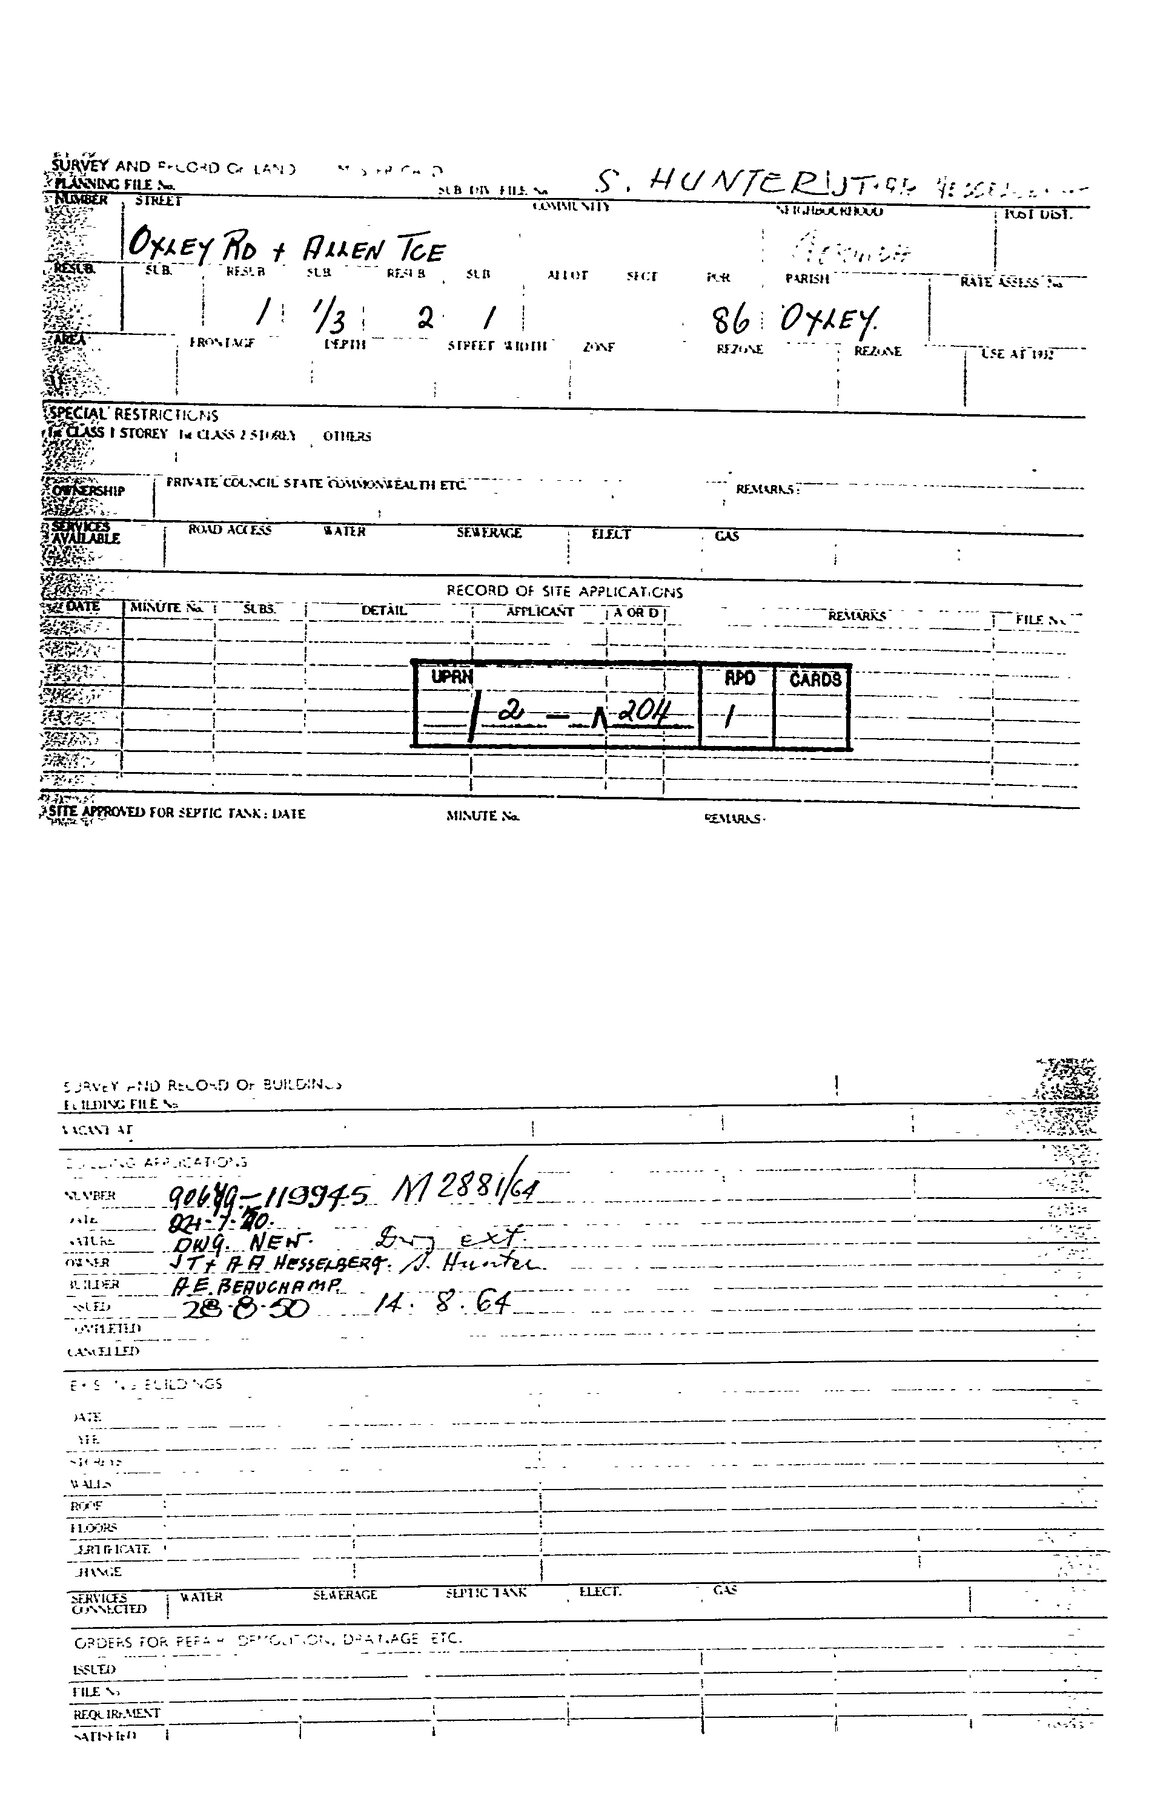 SURVEY AND RECORD OF LAND
PLANNING FILE No. SUB DIV. FILE No S. HUNTER
NUMBER STREET COMMUNITY NEIGHBOURHOOD POST DIST.
OXLEY RD + ALLEN TCE
RESUB. SUB. RESUB SUB. RESUB SUB ALLOT SECT POR PARISH RATE ASSESS No
1 1/3 2 1 86 OXLEY.
AREA FRONTAGE DEPTH STREET WIDTH ZONE REZONE REZONE USE AT 1932
SPECIAL RESTRICTIONS
1st CLASS 1 STOREY 1st CLASS 2 STOREY OTHERS
OWNERSHIP PRIVATE COUNCIL STATE COMMONWEALTH ETC. REMARKS:
SERVICES AVAILABLE ROAD ACCESS WATER SEWERAGE ELECT GAS
RECORD OF SITE APPLICATIONS
DATE MINUTE No. SUBS. DETAIL APPLICANT A OR D REMARKS FILE No.
UPRN RPD CARDS
2 — 204 1
SITE APPROVED FOR SEPTIC TANK: DATE MINUTE No. REMARKS.
SURVEY AND RECORD OF BUILDINGS
BUILDING FILE No
VACANT AT
BUILDING APPLICATIONS
NUMBER 119945 M2881/64
DATE
NATURE DWG. NEW. Dwg ext.
OWNER J T + A A HESSELBERG. S. Hunter
BUILDER A.E. BEAUCHAMP.
ISSUED 28-8-50 14.8.64
COMPLETED
CANCELLED
EXISTING BUILDINGS
DATE
TYPE
STOREYS
WALLS
ROOF
FLOORS
CERTIFICATE
CHANGE
SERVICES CONNECTED WATER SEWERAGE SEPTIC TANK ELECT. GAS
ORDERS FOR REPAIR, DEMOLITION, DRAINAGE ETC.
ISSUED
FILE No
REQUIREMENT
SATISFIED